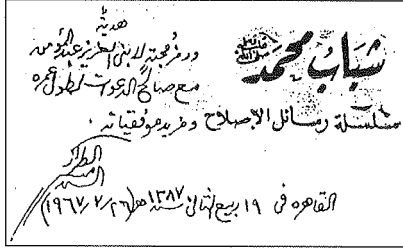 هدية
ورمز محبة لابني العزيز عبد المؤمن
مع صالح الدعوات لطول عمره
ومزيد موفقياته
شباب محمد
سلسلة رسائل الإصلاح
القاهرة في ١٩ ربيع الثاني سنة ١٣٨٧ هـ (٢٦/٧/١٩٦٧)